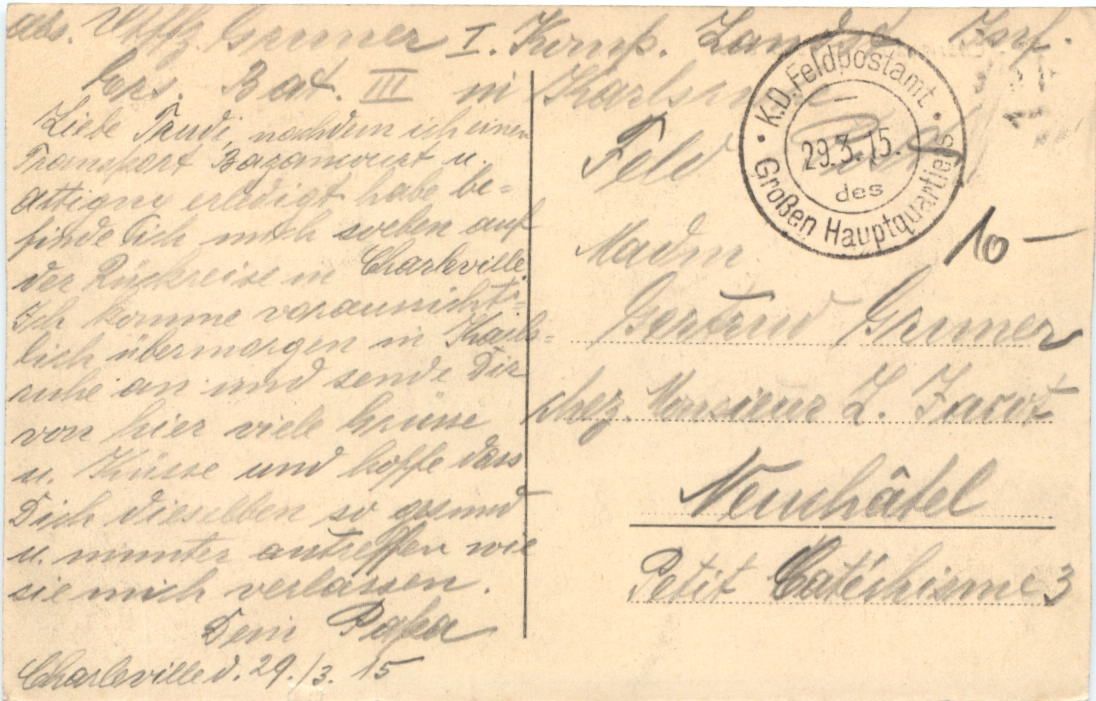 Abs. Uffz. Grumer I. Komp. Landst. Inf.
Ers. Bat. III in Karlsruhe
Liebe Trudi, nachdem ich einen
Transport Bazancourt u.
Attigny erledigt habe be-
finde ich mich soeben auf
der Rückreise in Charleville.
Ich komme voraussichti-
lich übermorgen in Karls-
ruhe an und sende Dir
von hier viele Grüsse
u. Küsse und hoffe dass
Dich dieselben so gesund
u. munter antreffen wie
sie mich verlassen.
Dein Papa
Charleville d. 29./3. 15
K.D. Feldpostamt
29.3.15.
des
Großen Hauptquartiers
Feld
10 –
Madm
Gertrud Grumer
chez Monsieur L. Jacot
Neuchâtel
Petit Catéchisme 3